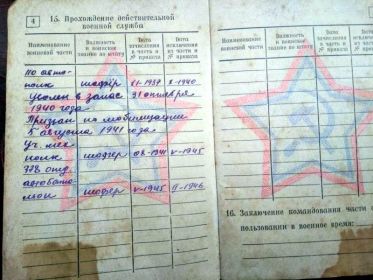 4
15. Прохождение действительной
военной службы
Наименование воинской части
Должность и воинское звание по штату
Дата зачисления в часть и № приказа
Дата исключения из части и № приказа
110 авто-
полк шофёр XI-1939 X-1940
Уволен в запас 31 октября
1940 года
Призван по мобилизации
5 августа 1941 года
Уч. мех
полк шофёр 08-1941 V-1945
778 отд.
автобата-
льон шофёр V-1945 II-1946
Наименование воинской части
Должность и воинское звание по штату
Дата зачисления в часть и № приказа
Дата исключения из части и № приказа
16. Заключение командования части
пользовании в военное время: